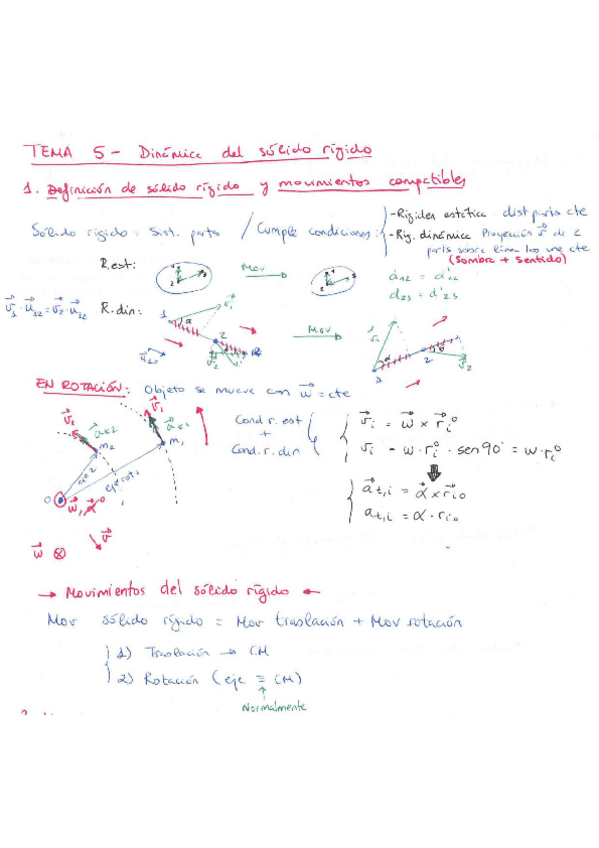 TEMA 5 - Dinámica del sólido rígido
1. Definición de sólido rígido y movimientos compatibles
Sólido rígido = Sist. parts / Cumple condiciones:
- Rigidez estática: dist parts cte
- Rig. dinámica Proyección v⃗ de 2
parts sobre línea los une cte
(Sombra + sentido)
R.est: Mov d₁₂ = d'₁₂
d₂₃ = d'₂₃
v⃗₁ · u⃗₁₂ = v⃗₂ · u⃗₁₂ R.din: Mov
EN ROTACIÓN: Objeto se mueve con w⃗ = cte
Cond r. est
+
Cond. r. din
v⃗ᵢ = w⃗ × r⃗ᵢ₀
vᵢ = w · rᵢ₀ · sen 90° = w · rᵢ₀
a⃗t,i = α⃗ × r⃗ᵢ₀
at,i = α · rᵢ₀
→ Movimientos del sólido rígido ←
Mov sólido rígido = Mov traslación + Mov rotación
1) Traslación → CM
2) Rotación (eje ≡ CM)
↑
Normalmente